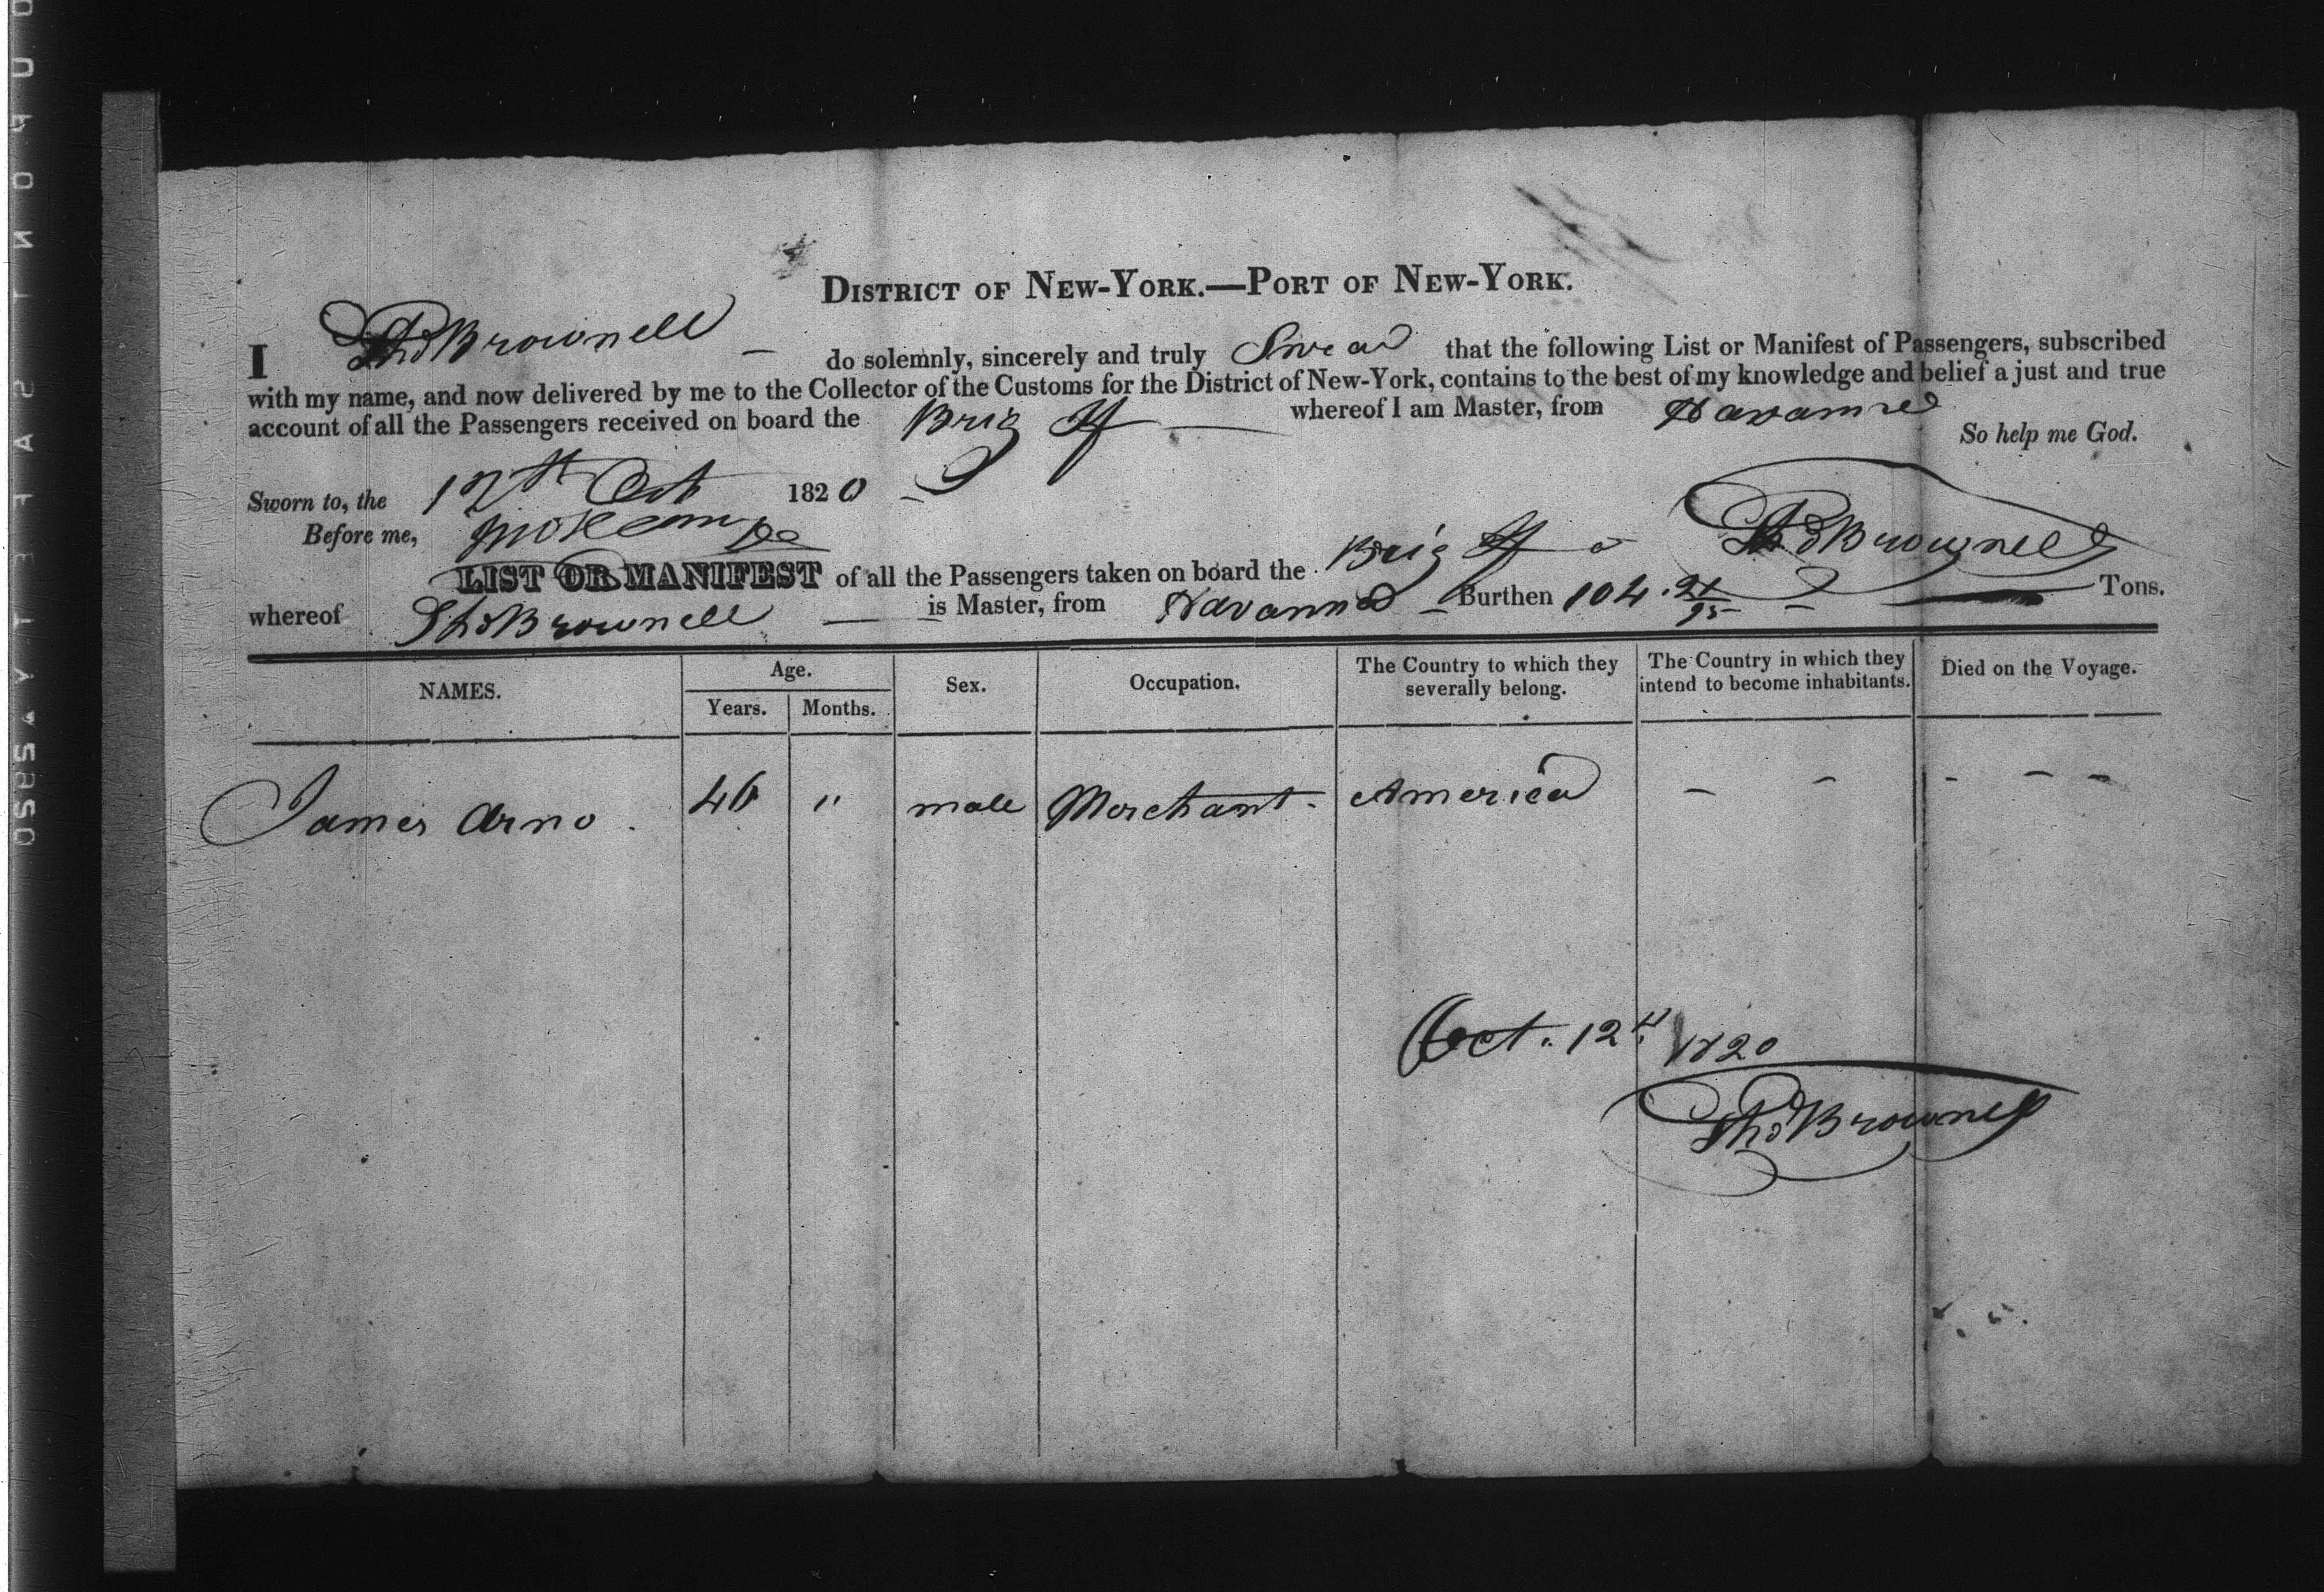 DISTRICT OF NEW-YORK.—PORT OF NEW-YORK.
I Thos Brownell — do solemnly, sincerely and truly Swear that the following List or Manifest of Passengers, subscribed
with my name, and now delivered by me to the Collector of the Customs for the District of New-York, contains to the best of my knowledge and belief a just and true
account of all the Passengers received on board the Brig whereof I am Master, from Havanna
So help me God.
Sworn to, the 12th Oct 1820
Before me,
Thos Brownell
LIST OR MANIFEST of all the Passengers taken on board the Brig
whereof Thos Brownell — is Master, from Havanna Burthen 104. 21/95 Tons.
NAMES. Age. Years. Months. Sex. Occupation. The Country to which they severally belong. The Country in which they intend to become inhabitants. Died on the Voyage.
James Arno. 46 " male Merchant. America - - - - -
Oct. 12th 1820
Thos Brownell